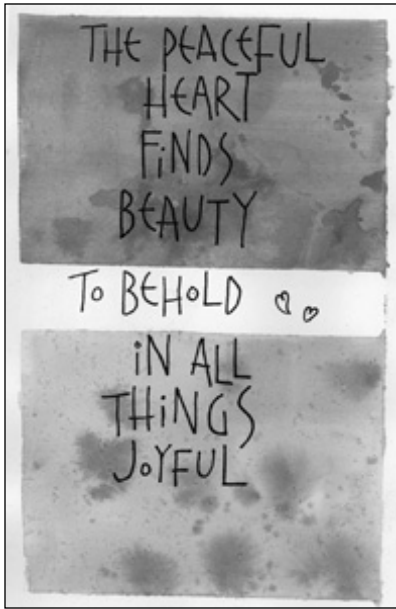 THE PEACEFUL
HEART
FiNDS
BEAUTY
To BEHoLD
iN ALL
THiNGS
JoYFUL